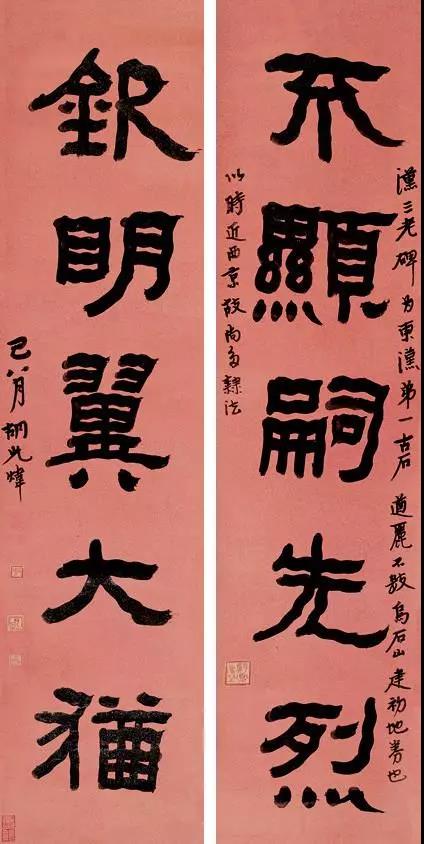 漢三老碑为東漢弟一古石遒麗不數烏石山建初地券也
不顯嗣先烈
以時近西京故尚多隸法
欽明翼大猶
己八月胡光煒